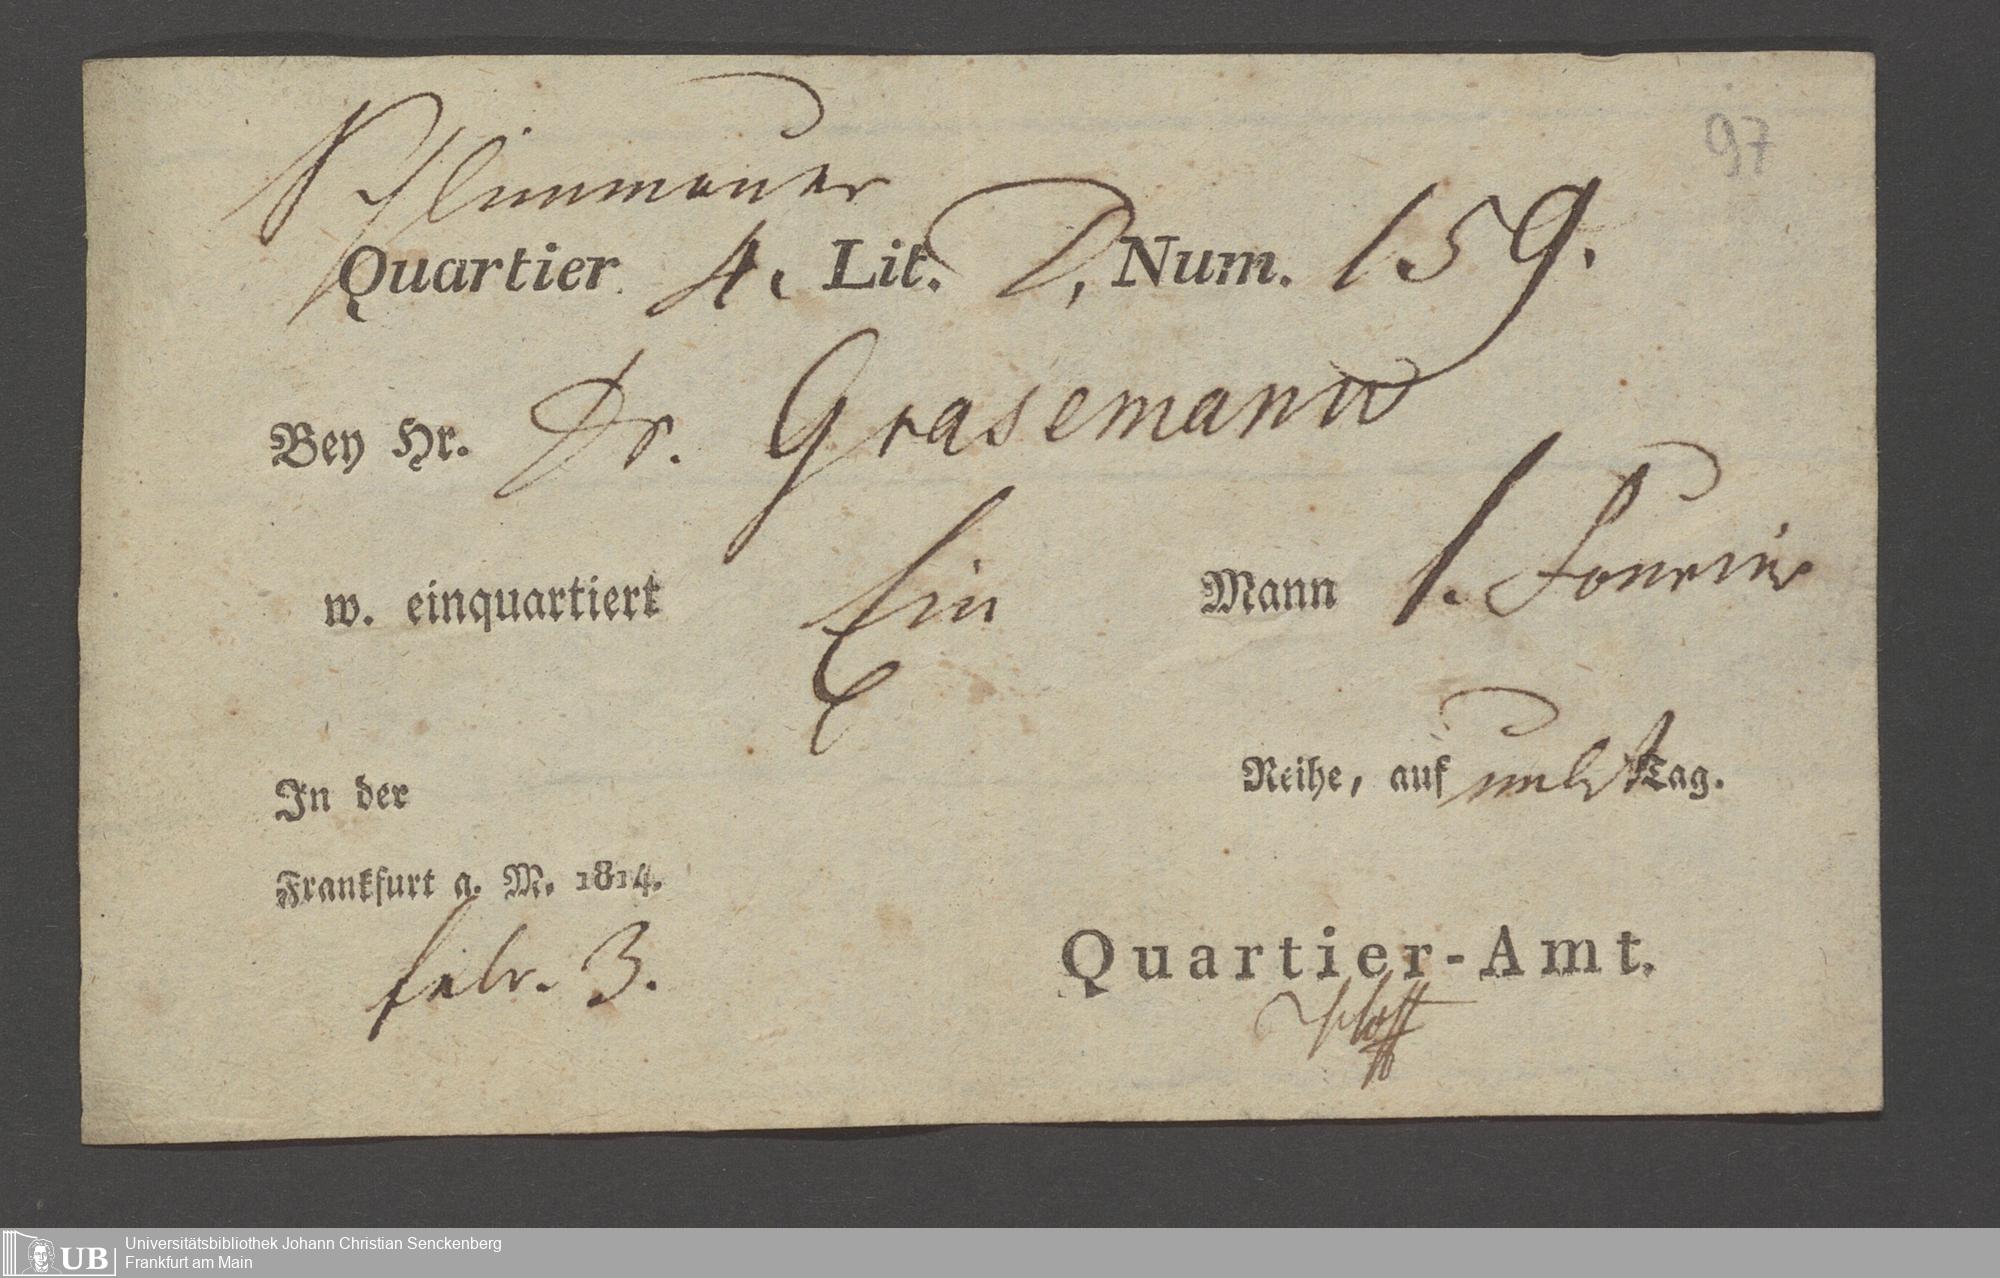 97
Schlimmauer
Quartier 4. Lit. D, Num. 159.
Bey Hr. Dr. Grasemann
w. einquartiert Ein Mann 1. Fourier
In der Reihe, auf unbst Tag.
Frankfurt a. M. 1814.
febr. 3.
Quartier-Amt.
UB
Universitätsbibliothek Johann Christian Senckenberg
Frankfurt am Main